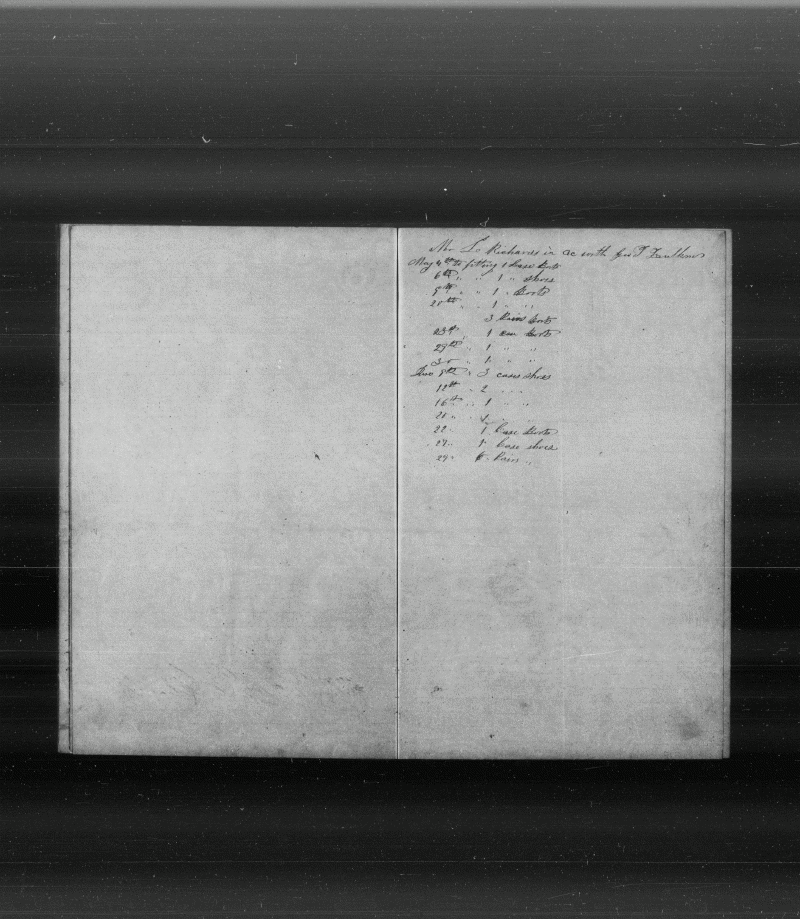 Mr L Richards in ac with Geo T Faulkner
May 4th to fitting 1 Case Boots
6th " " 1 " Shoes
9th " 1 " Boots
20th " 1 " "
3 Pairs Boots
23d " 1 case Boots
29th " 1 " "
30 " 1 " "
June 8th " 3 cases shoes
12th " 2 " "
16th " " 1 " "
21 " 1 " "
22 " 1 Case Boots
27 " 1 Case shoes
29 " 6 Pairs "